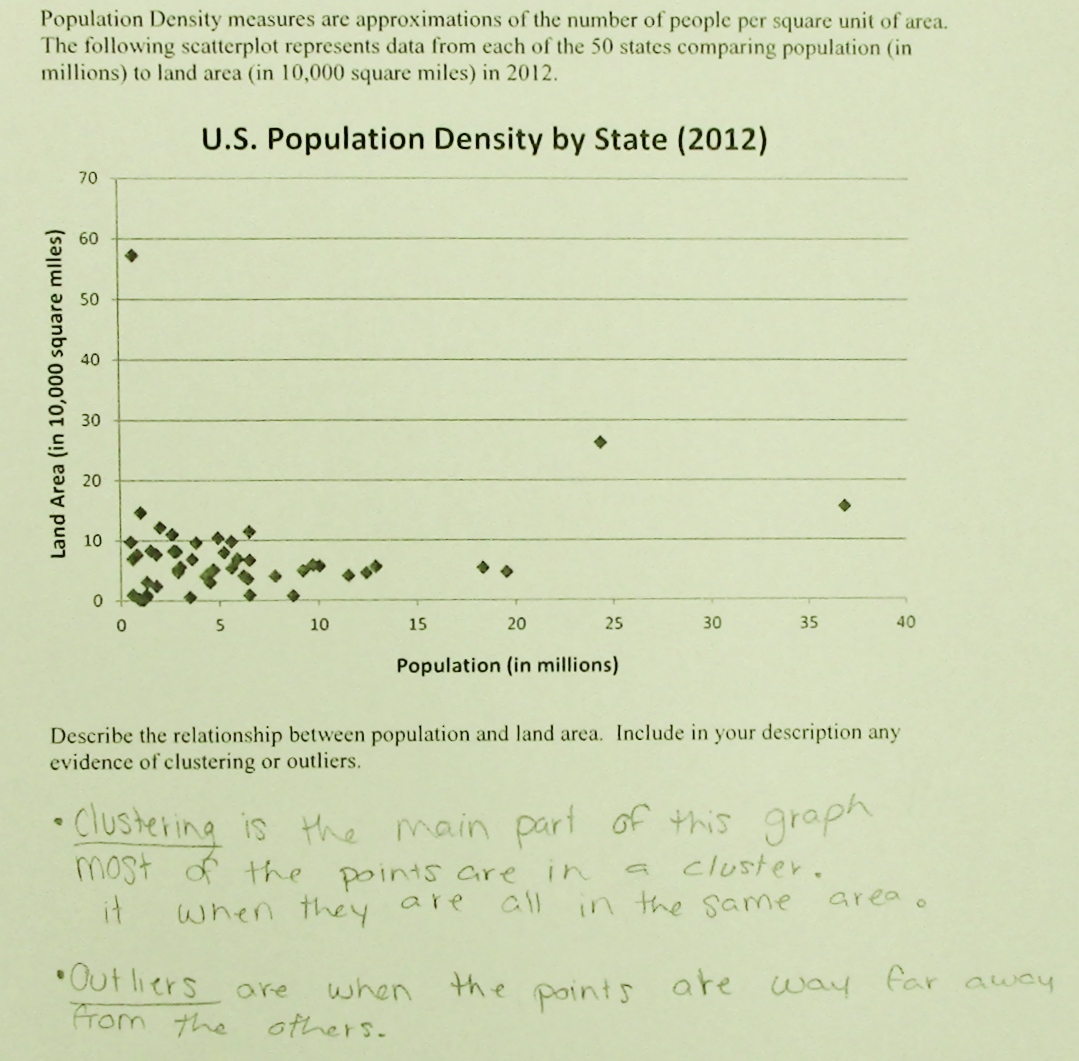 Population Density measures are approximations of the number of people per square unit of area.
The following scatterplot represents data from each of the 50 states comparing population (in
millions) to land area (in 10,000 square miles) in 2012.
U.S. Population Density by State (2012)
Land Area (in 10,000 square miles)
70
60
50
40
30
20
10
0
0 5 10 15 20 25 30 35 40
Population (in millions)
Describe the relationship between population and land area. Include in your description any
evidence of clustering or outliers.
• Clustering is the main part of this graph
most of the points are in a cluster.
it when they are all in the same area.
• Outliers are when the points are way far away
from the others.